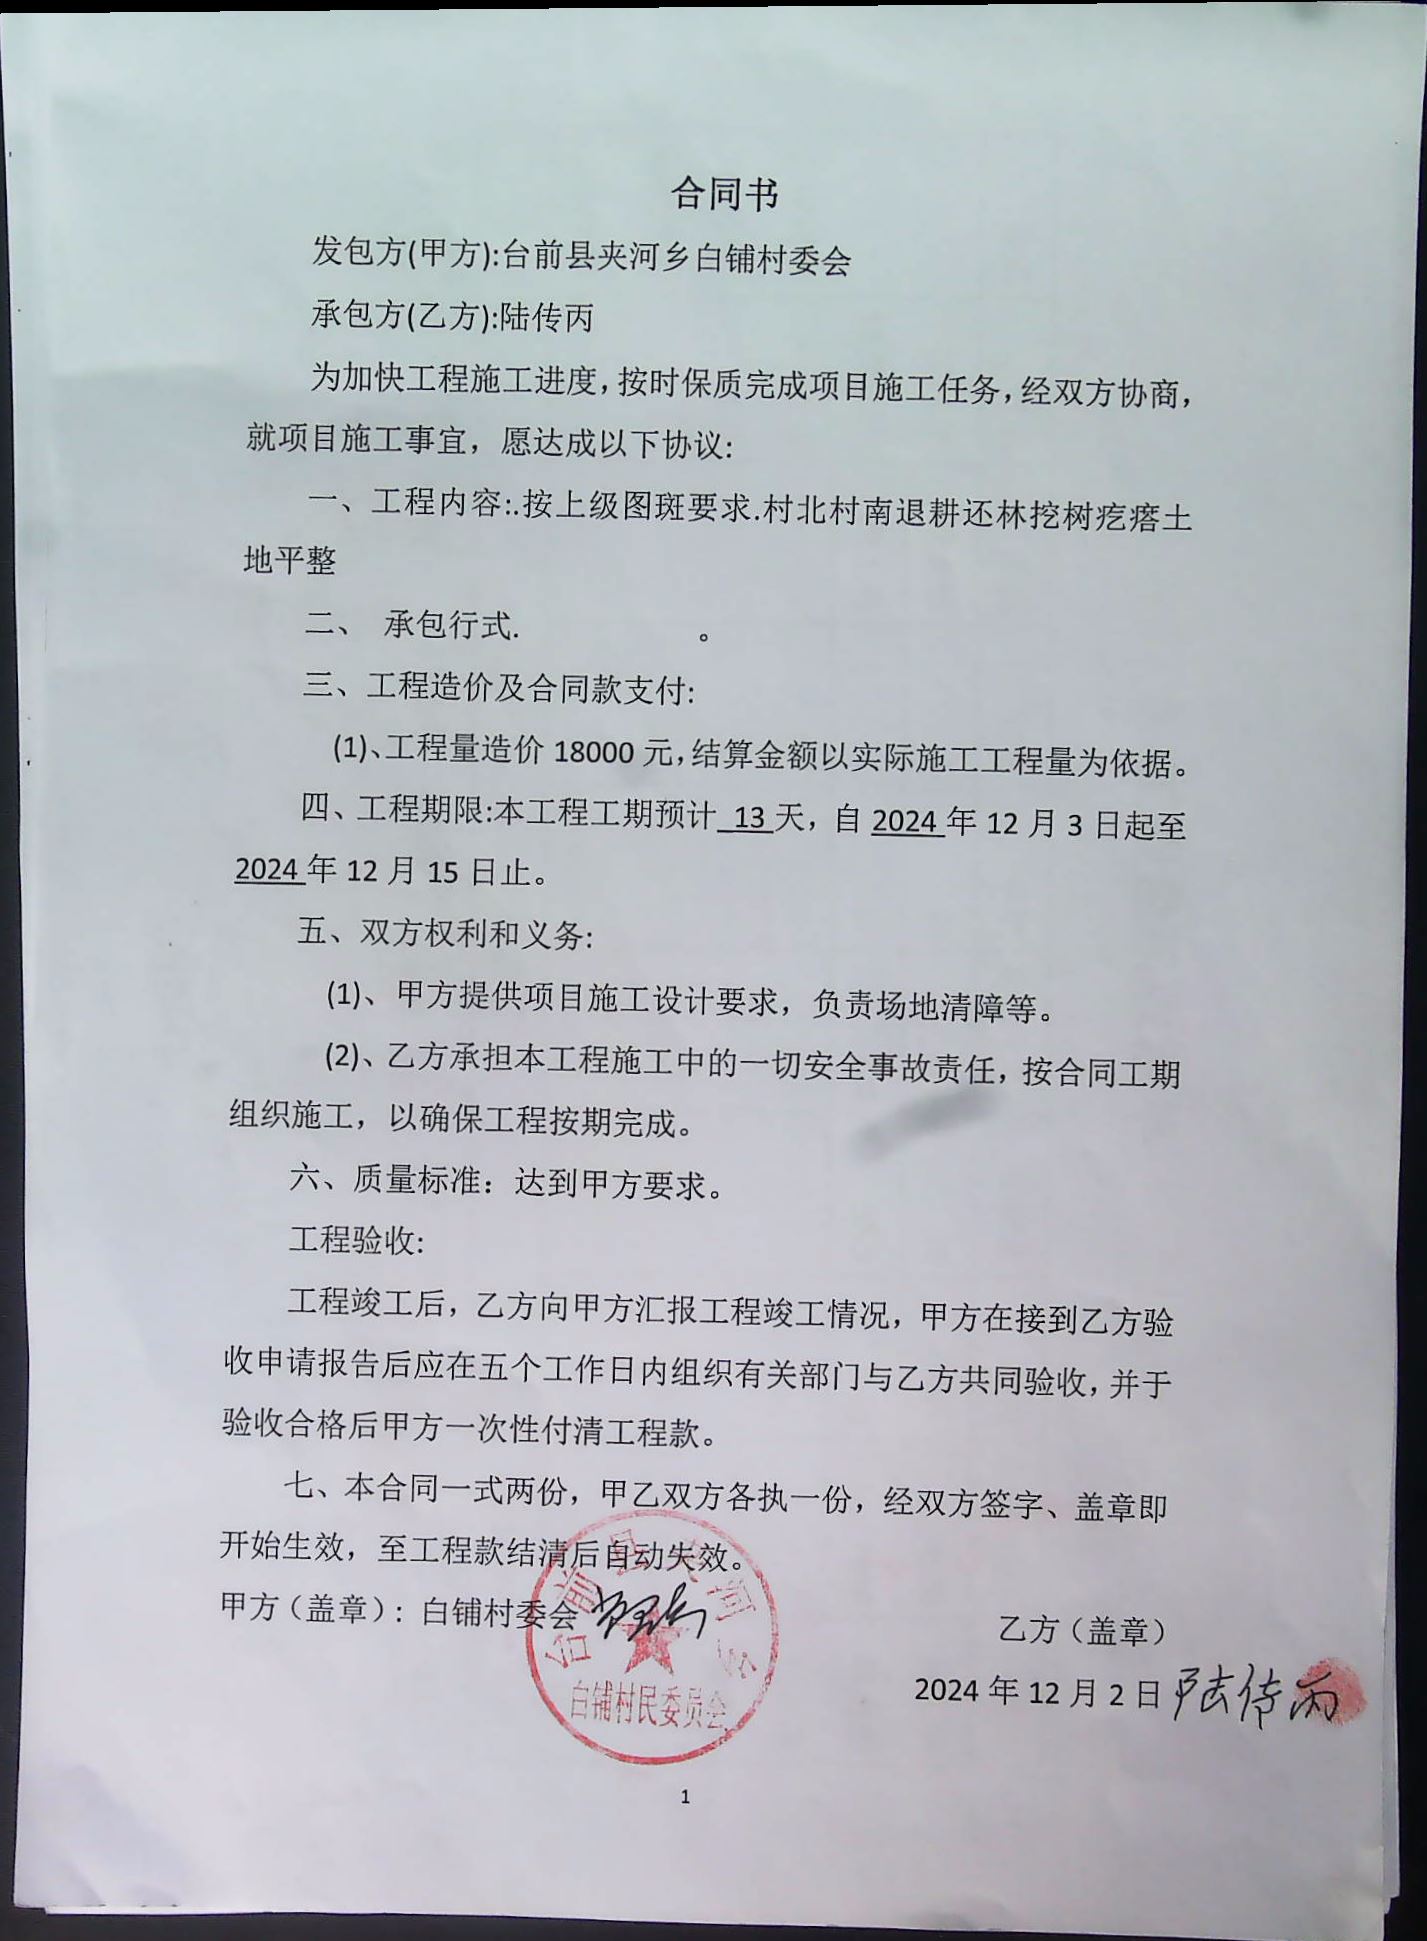 合同书
发包方(甲方):台前县夹河乡白铺村委会
承包方(乙方):陆传丙
为加快工程施工进度,按时保质完成项目施工任务,经双方协商,
就项目施工事宜，愿达成以下协议:
一、工程内容:.按上级图斑要求.村北村南退耕还林挖树疙瘩土
地平整
二、 承包行式. 。
三、工程造价及合同款支付:
(1)、工程量造价 18000 元,结算金额以实际施工工程量为依据。
四、工程期限:本工程工期预计 13 天，自 2024 年 12 月 3 日起至
2024 年 12 月 15 日止。
五、双方权利和义务:
(1)、甲方提供项目施工设计要求，负责场地清障等。
(2)、乙方承担本工程施工中的一切安全事故责任，按合同工期
组织施工，以确保工程按期完成。
六、质量标准：达到甲方要求。
工程验收:
工程竣工后，乙方向甲方汇报工程竣工情况，甲方在接到乙方验
收申请报告后应在五个工作日内组织有关部门与乙方共同验收,并于
验收合格后甲方一次性付清工程款。
七、本合同一式两份，甲乙双方各执一份，经双方签字、盖章即
开始生效，至工程款结清后自动失效。
甲方（盖章）: 白铺村委会
台前县夹河乡
白铺村民委员会
乙方（盖章）
2024 年 12 月 2 日 陆传丙
1